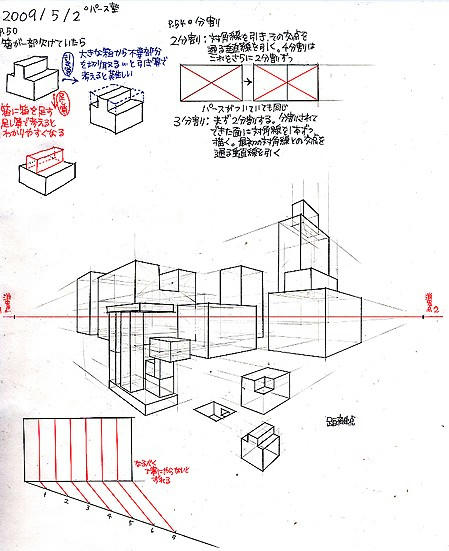 2009/5/2 パース塾
P.50
箱が一部欠けていたら
引き算
大きな箱から不要部分
を切り取るいと引き算で
考えると難しい
足し算
箱に箱を足す
足し算で考えると
わかりやすくなる
P.54 分割
2分割：対角線を引き、その交点を
通る垂直線を引く。4分割は
これをさらに2分割ずつ
パースがついていても同じ
3分割：まず2分割する。分割されて
できた面に対角線を1本ずつ
描く。最初の対角線との交点を
通る垂直線を引く
消失点
消失点2
なるべく
丁寧にやらないと
ずれる
1
2
3
4
5
6